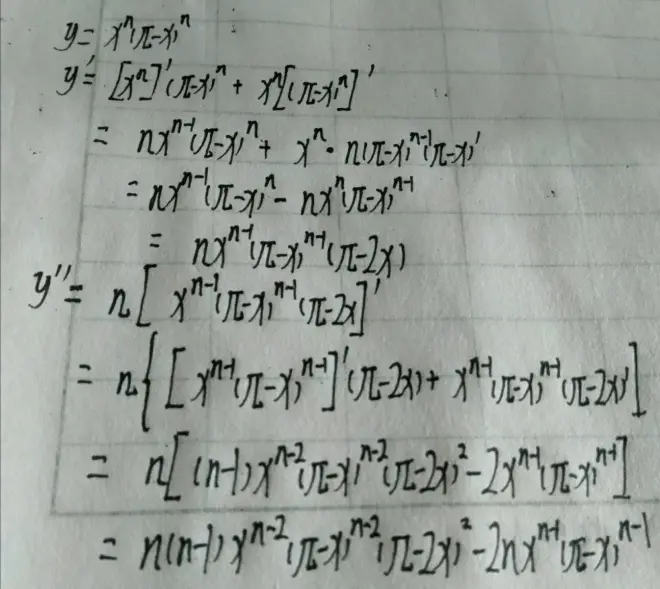 y = xⁿ(π-x)ⁿ
y' = [xⁿ]'(π-x)ⁿ + xⁿ[(π-x)ⁿ]'
= nxⁿ⁻¹(π-x)ⁿ + xⁿ·n(π-x)ⁿ⁻¹(π-x)'
= nxⁿ⁻¹(π-x)ⁿ - nxⁿ(π-x)ⁿ⁻¹
= nxⁿ⁻¹(π-x)ⁿ⁻¹(π-2x)
y'' = n[xⁿ⁻¹(π-x)ⁿ⁻¹(π-2x]'
= n{[xⁿ⁻¹(π-x)ⁿ⁻¹]'(π-2x) + xⁿ⁻¹(π-x)ⁿ⁻¹(π-2x)']
= n[(n-1)xⁿ⁻²(π-x)ⁿ⁻²(π-2x)² - 2xⁿ⁻¹(π-x)ⁿ⁻¹]
= n(n-1)xⁿ⁻²(π-x)ⁿ⁻²(π-2x)² - 2nxⁿ⁻¹(π-x)ⁿ⁻¹